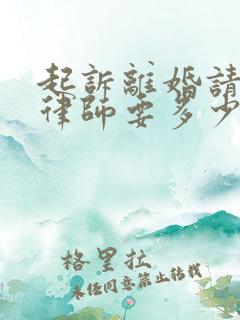 起訴離婚請
律師要多少
格里拉
未经同意禁止转载